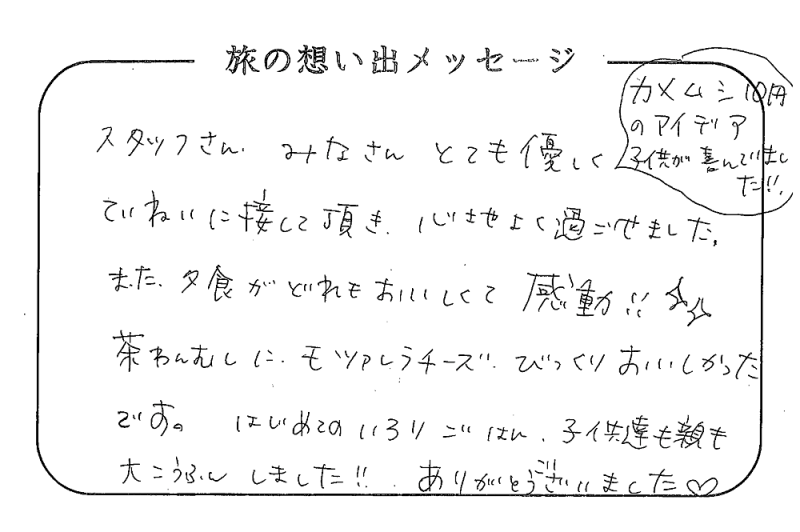 旅の想い出メッセージ
カメムシ10円
のアイデア
子供が喜んでいまし
た!!
スタッフさん、みなさん とても優しく
ていねいに接して頂き、心地よく過ごせました。
また、夕食がどれもおいしくて 感動!!
茶わんむしに、モツァレラチーズ、びっくり おいしかった
です。 はじめてのいろりごはん、子供達も親も
大こうふん しました!! ありがとうございました♡